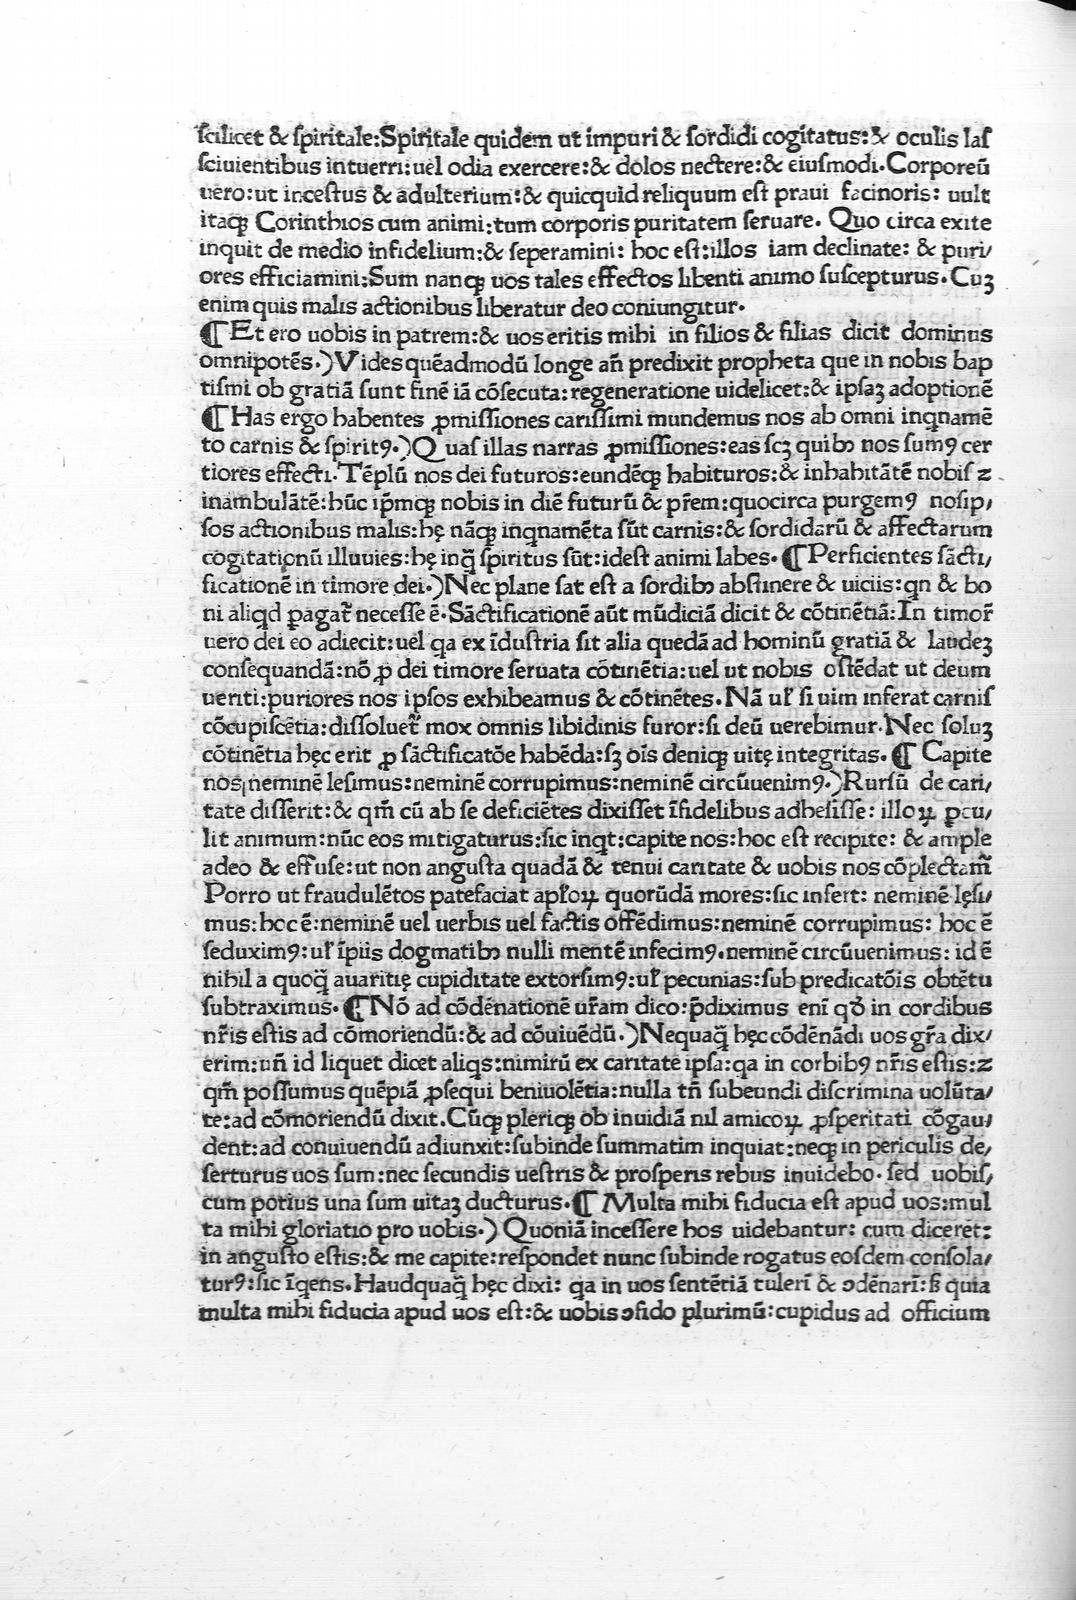 ſcilicet & ſpiritale:Spiritale quidem ut impuri & ſordidi cogitatus:& oculis laſ
ſciuientibus intuerri:uel odia exercere:& dolos nectere:& eiuſmodi.Corporeū
uero:ut inceſtus & adulterium:& quicquid reliquum eſt praui facinoris: uult
itaqꝫ Corinthios cum animi:tum corporis puritatem ſeruare. Quo circa exite
inquit de medio infidelium:& ſeperamini: hoc eſt:illos iam declinate: & puri/
ores efficiamini:Sum nanqꝫ uos tales effectos libenti animo ſuſcepturus.Cuꝫ
enim quis malis actionibus liberatur deo coniungitur.
¶ Et ero uobis in patrem:& uos eritis mihi in filios & filias dicit dominus
omnipotēs.)Vides quēadmodū longe an̄ predixit propheta que in nobis bap
tiſmi ob gratiā ſunt finē iā cōſecuta:regeneratione uidelicet:& ipſaꝫ adoptionē
¶ Has ergo habentes ꝓmiſſiones cariſſimi mundemus nos ab omni inqnamē
to carnis & ſpiritꝰ.)Quas illas narras ꝓmiſſiones:eas ſcꝫ quibꝫ nos ſumꝰ cer
tiores effecti.Tēplū nos dei futuros:eundēqꝫ habituros:& inhabitātē nobiſ ⁊
inambulātē:hūc ip̄mqꝫ nobis in diē futurū & pr̄em:quocirca purgemꝰ noſip/
ſos actionibus malis:hę nāqꝫ inqnamēta ſūt carnis:& ſordidarū & affectarum
cogitationū illuuies:hę inq̄ ſpiritus ſūt:ideſt animi labes.¶ Perficientes ſācti/
ficationē in timore dei.)Nec plane ſat eſt a ſordibꝫ abſtinere & uiciis:qn & bo
ni aliqd ꝑagat᷑ neceſſe ē.Sāctificationē aūt mūdiciā dicit & cōtinētiā:In timor̄
uero dei eo adiecit:uel qa ex īduſtria ſit alia quedā ad hominū gratiā & laudeꝫ
conſequandā:nō ꝓ dei timore ſeruata cōtinētia:uel ut nobis oſtēdat ut deum
ueriti:puriores nos ipſos exhibeamus & cōtinētes.Nā uł ſi uim inferat carniſ
cōcupiſcētia:diſſoluet᷑ mox omnis libidinis furor:ſi deū uerebimur.Nec ſoluꝫ
cōtinētia hęc erit ꝓ ſāctificatōe habēda:ſꝫ oīs deniqꝫ uitę integritas.¶ Capite
nos,neminē leſimus:neminē corrupimus:neminē circūuenimꝰ.)Rurſū de cari/
tate diſſerit:& qm̄ cū ab ſe deficiētes dixiſſet īfidelibus adheſiſſe: illoꝝ ꝑcu/
lit animum:nūc eos mitigaturus:ſic inqt:capite nos:hoc eſt recipite: & ample
adeo & effuſe:ut non anguſta quadā & tenui caritate & uobis nos cōplectam᷑
Porro ut fraudulētos patefaciat apłoꝝ quorūdā mores:ſic infert: neminē lęſi/
mus:hoc ē:neminē uel uerbis uel factis offēdimus:neminē corrupimus: hoc ē
ſeduximꝰ:uł īpiis dogmatibꝫ nulli mentē infecimꝰ.neminē circūuenimus: id ē
nihil a quoq̄ auaritię cupiditate extorſimꝰ:uł pecunias:ſub predicatōis obtētu
ſubtraximus.¶ Nō ad cōdēnationē ur̄am dico:p̄diximus enī qđ in cordibus
nr̄is eſtis ad cōmoriendū:& ad cōuiuēdū.)Nequaq̄ hęc cōdēnādi uos gr̄a dix/
erim:un̄ id liquet dicet aliqs:nimirū ex caritate ipſa:qa in corbibꝰ nr̄is eſtis:⁊
qm̄ poſſumus quēpiā ꝓſequi beniuolētia:nulla tn̄ ſubeundi diſcrimina uolūta/
te:ad cōmoriendū dixit.Cūqꝫ pleriqꝫ ob inuidiā nil amicoꝝ ꝓſperitati cōgau/
dent:ad conuiuendū adiunxit:ſubinde ſummatim inquiat:neqꝫ in periculis de/
ſerturus uos ſum:nec ſecundis ueſtris & proſperis rebus inuidebo.ſed uobiſ/
cum potius una ſum uitaꝫ ducturus.¶ Multa mihi fiducia eſt apud uos:mul
ta mihi gloriatio pro uobis.) Quoniā inceſſere hos uidebantur: cum diceret:
in anguſto eſtis:& me capite:reſpondet nunc ſubinde rogatus eoſdem conſola/
turꝰ:ſic īqens.Haudquaq̄ hęc dixi: qa in uos ſentētiā tulerī & ↄdēnarī:ſꝫ quia
multa mihi fiducia apud uos eſt:& uobis ↄfido plurimū:cupidus ad officium